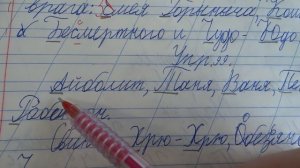 врага: Змея Горыныча, Кощ
Бесмертного и Чудо-Юдо
Упр
Айболит, Таня, Ваня, Пе
Робинзон.
Хрю-Хрю, Обезян